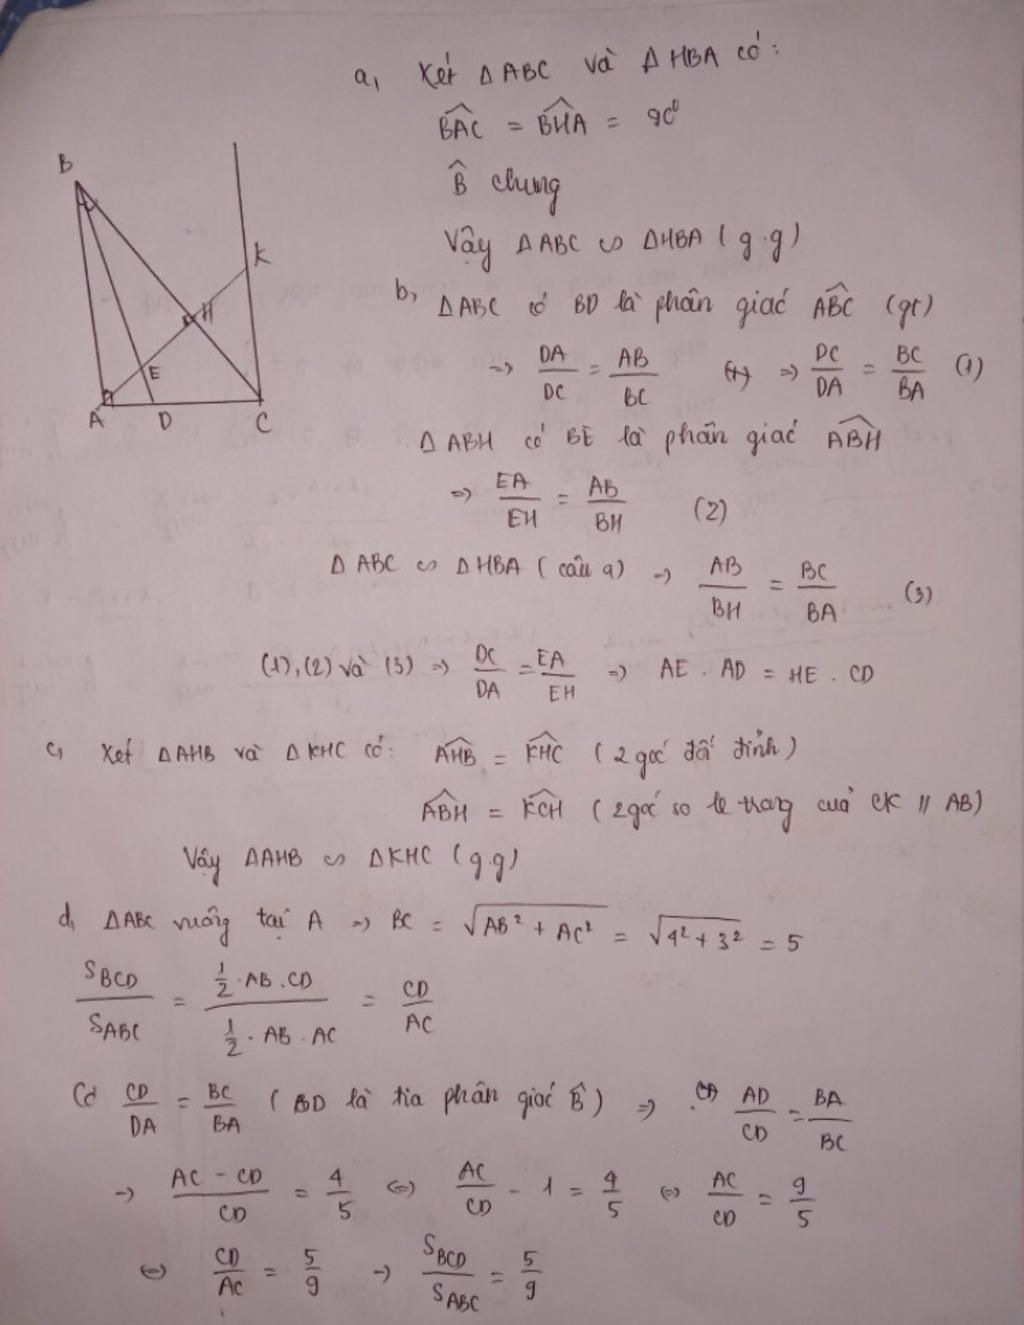 a, Xét △ABC và △HBA có:
BAC^ = BHA^ = 90⁰
B^ chung
Vậy △ABC ∽ △HBA (g.g)
B
K
H
E
A D C
b, △ABC có BD là phân giác ABC^ (gt)
=> DA/DC = AB/BC => DC/DA = BC/BA (1)
△ABH có BE là phân giác ABH^
=> EA/EH = AB/BH (2)
△ABC ∽ △HBA (câu a) => AB/BH = BC/BA (3)
(1), (2) và (3) => DC/DA = EA/EH => AE . AD = HE . CD
c, Xét △AHB và △KHC có: AHB^ = KHC^ (2 góc đối đỉnh)
ABH^ = KCH^ (2 góc so le trong của CK // AB)
Vậy △AHB ∽ △KHC (g.g)
d, △ABC vuông tại A => BC = √(AB² + AC²) = √(4² + 3²) = 5
S_BCD/S_ABC = (1/2 . AB . CD)/(1/2 . AB . AC) = CD/AC
Có CD/DA = BC/BA (BD là tia phân giác B^) => AD/CD = BA/BC
=> (AC - CD)/CD = 4/5 <=> AC/CD - 1 = 4/5 <=> AC/CD = 9/5
<=> CD/AC = 5/9 => S_BCD/S_ABC = 5/9